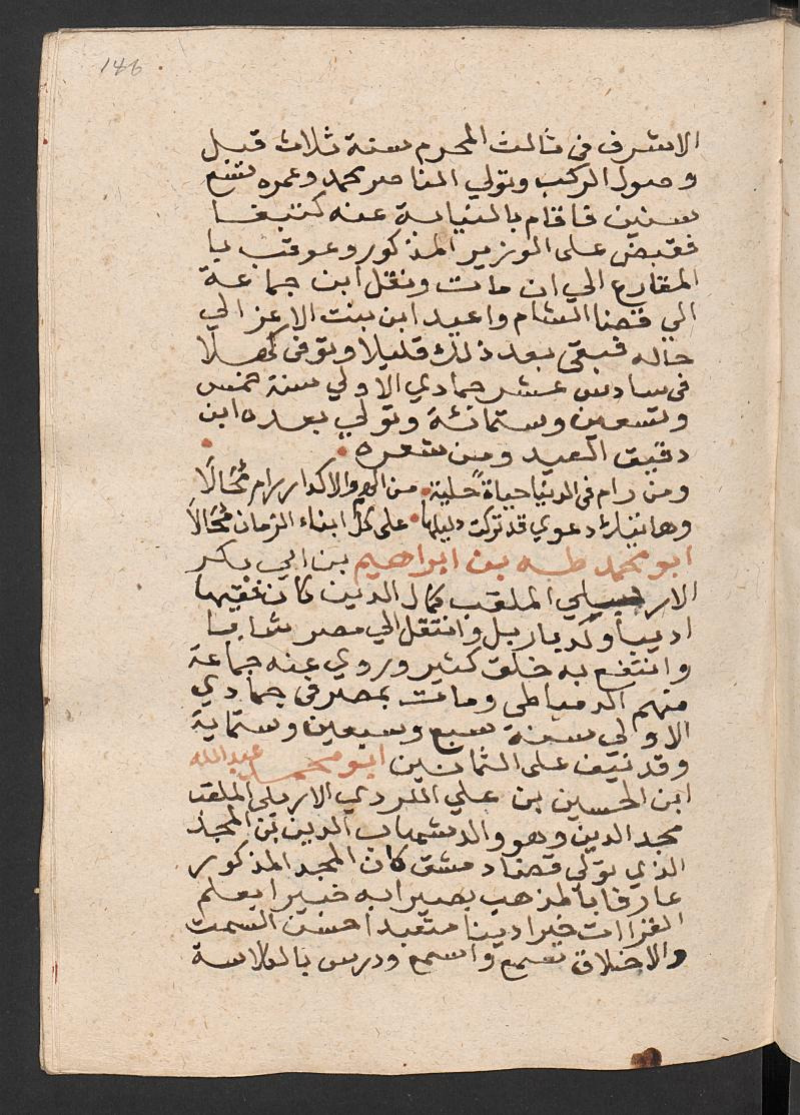 146
الاشرف فى ثالث المحرم سنة ثلاث قبل
وصول الركب وتولي الناصر محمد وعمره تسع
سنين فاقام بالنيابة عنه كتبغا
فقبض على الوزير المذكور وعوقب با
المقارع الي ان مات ونقل ابن جماعة
الي قضا الشام واعيد ابن بنت الاعز الي
حاله فبقى بعد ذلك قليلا وتوفى كهلا
فى سادس عشر جمادي الاولي سنة خمس
وتسعين وستمائة وتولي بعده ابن
دقيق العيد ومن شعره
ومن رام فى الدنيا حياة خلية من الهم والاكدار رام مُحَالًا
وهاتيك دعوي قد تركت دليلها على كل ابناء الزمان مُحَالاً
ابو محمد طه بن ابراهيم بن ابي بكر
الاربلي الملقب كمال الدين كان فقيها
اديبا ولد باربل وانتقل الي مصر شابا
وانتفع به خلق كثير وروي عنه جماعة
منهم الدمياطى ومات بمصر فى جمادي
الاولي سنة سبع وسبعين وستماية
وقد نيف على الثمانين ابو محمد عبدالله
ابن الحسين بن علي الكردي الاربلى الملقب
مجد الدين وهو والد شهاب الدين بن المجد
الذي تولي قضا دمشق كان المجد المذكور
عارفا بالمذهب بصيرا به خبيرا بعلم
القراات خيرا دينا متعبدا حسن السمت
والاخلاق سمع واسمع ودرس بالكلاسة